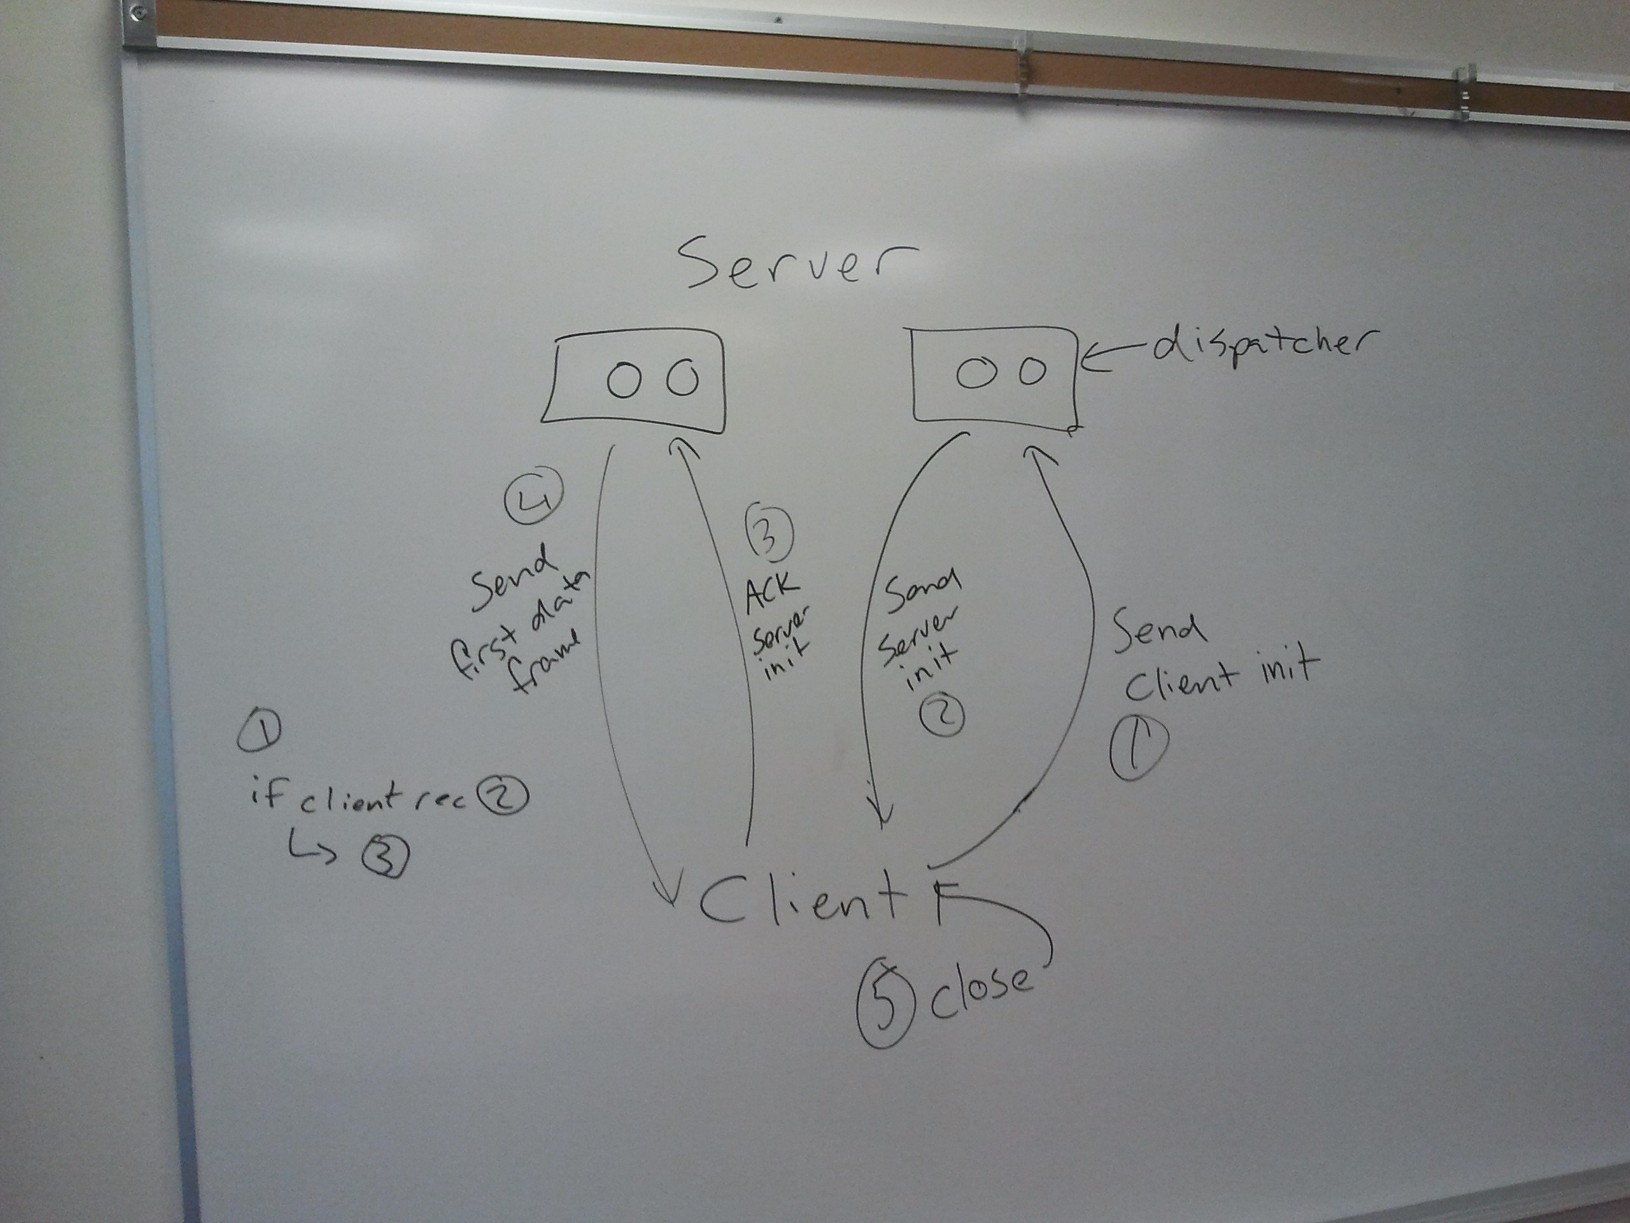 Server
dispatcher
④
Send
first data
frame
③
ACK
Server
init
Send
Server
init
②
Send
Client init
①
①
if client rec ②
↳ ③
Client
⑤ close